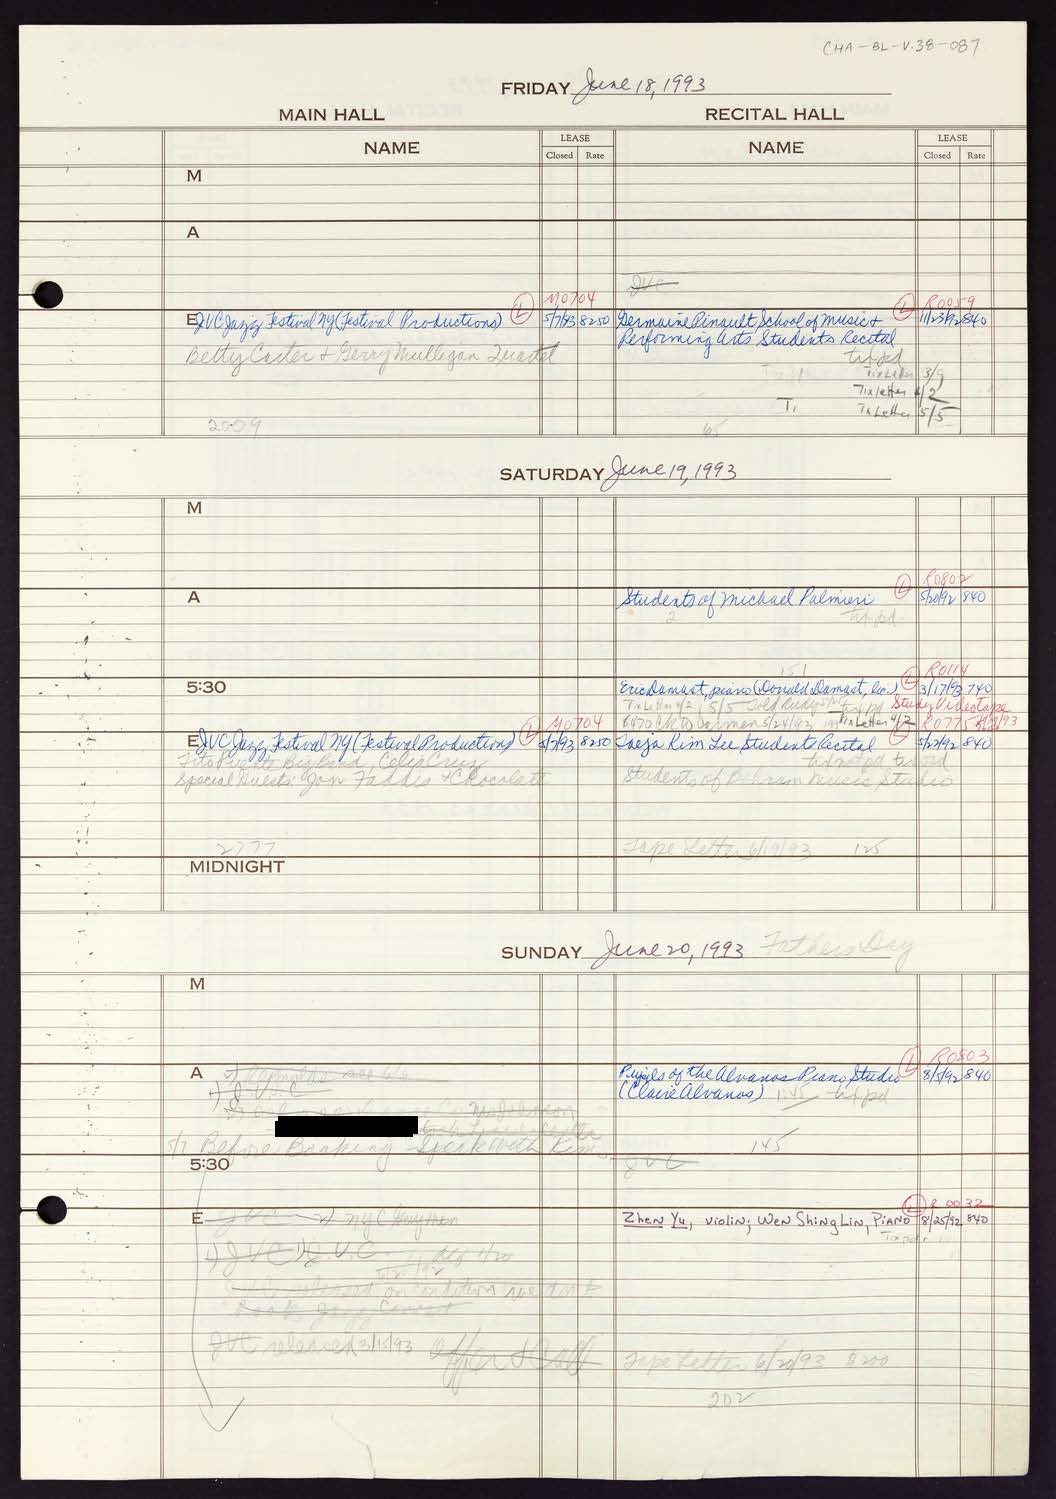 CHA-BL-V.38-087
FRIDAY June 18, 1993
MAIN HALL RECITAL HALL
NAME LEASE NAME LEASE
Closed Rate Closed Rate
M
A
JVC
L M0704 L R0059
E JVC Jazz Festival NY (Festival Productions) 5/7/93 8250 Germaine Pinault School of Music & 11/23/92 840
Performing Arts Students Recital
Betty Carter & Gerry Mulligan Quartet txf pd
Tix Letter 3/9
Tix Letter 4/2
Tix Letter 5/5
2009 65
SATURDAY June 19, 1993
M
L R0802
A Students of Michael Palmieri 5/20/92 840
2 txf pd
151
L R0114
5:30 Eric Damast, piano (Donald Damast, Inc.) 3/17/93 740
Tix Letter 4/2 5/5 txf pd Study Videotape
L M0704 Tix Letter 4/2 L
E JVC Jazz Festival NY (Festival Productions) 5/7/93 8250 Taeja Kim Lee Students Recital 5/22/92 840
Tito Puente Big Band, Celia Cruz
Special Guests: Jon Faddis + Chocolate Students of Music Studio
2777 Tape Letter 6/19/93 125
MIDNIGHT
SUNDAY June 20, 1993 Fathers Day
M
L R0803
A Pupils of the Alvanos Piano Studio 8/5/92 840
1) J.V.C. (Claire Alvanos) txf pd
Before Booking Speak with Kim 145
5:30 JVC
L R0032
E JVC 2) NYC Zhen Yu, violin; Wen Shing Lin, Piano 8/25/92 840
1) JVC J.V.C.
released on condition we don't
book Jazz Concert
JVC released 3/15/93 Offer & Call Tape Letter 6/20/93
202